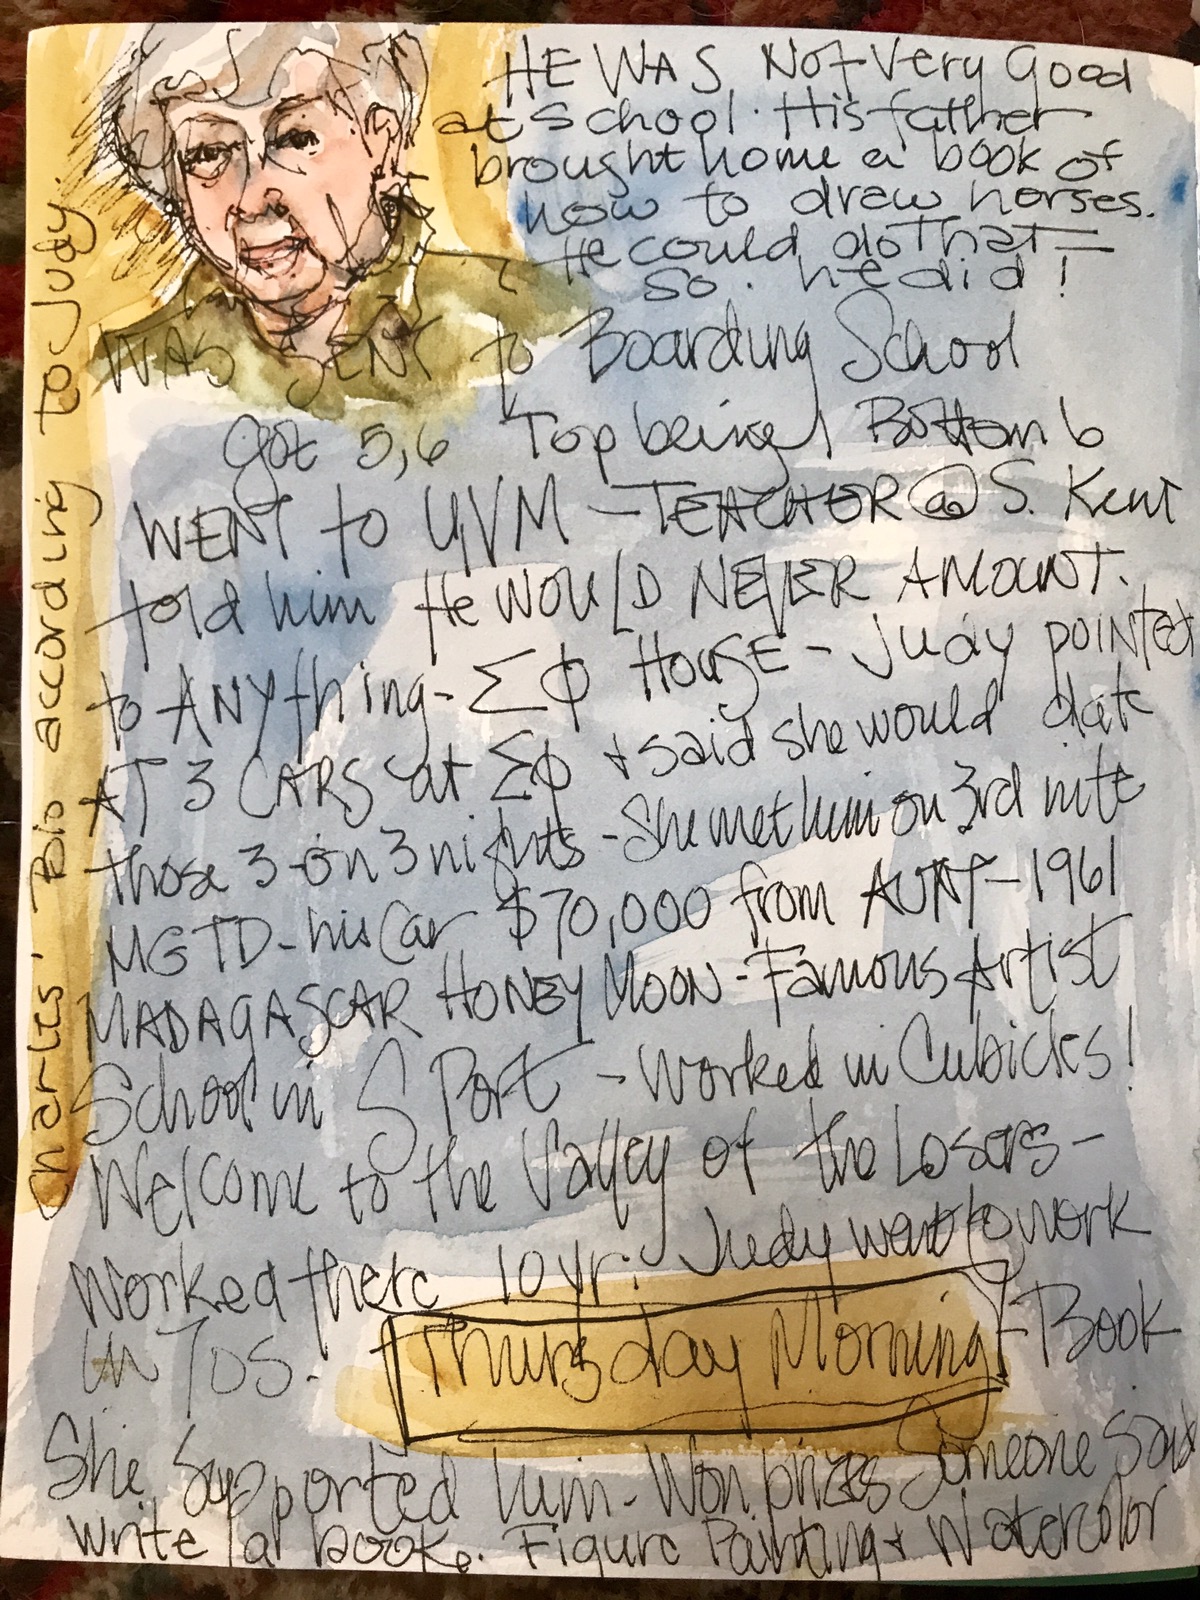 Charles' Bio according to Judy.
HE WAS Not Very Good
at School. His father
brought home a book of
how to draw horses.
He could do That =
So. he did!
WAS SENT to Boarding School
got 5,6 Top being 1 Bottom 6
WENT to UVM - TEACHER @ S. Kent
told him He WOULD NEVER AMOUNT.
to ANything - ΣΦ HOUSE - Judy pointed
AT 3 CARS at ΣΦ + said she would date
those 3 on 3 nights - She met him on 3rd nite
MGTD - his Car $70,000 from AUNT - 1961
MADAGASCAR HONEY MOON - Famous Artist
School in S Port - Worked in Cubicles!
Welcome to the Valley of the Losers -
Worked there 10 yr. Judy went to work
in 70s. Thursday Morning - Book
She Supported him - Won prizes Someone Said
write a book. Figure Painting + Watercolor